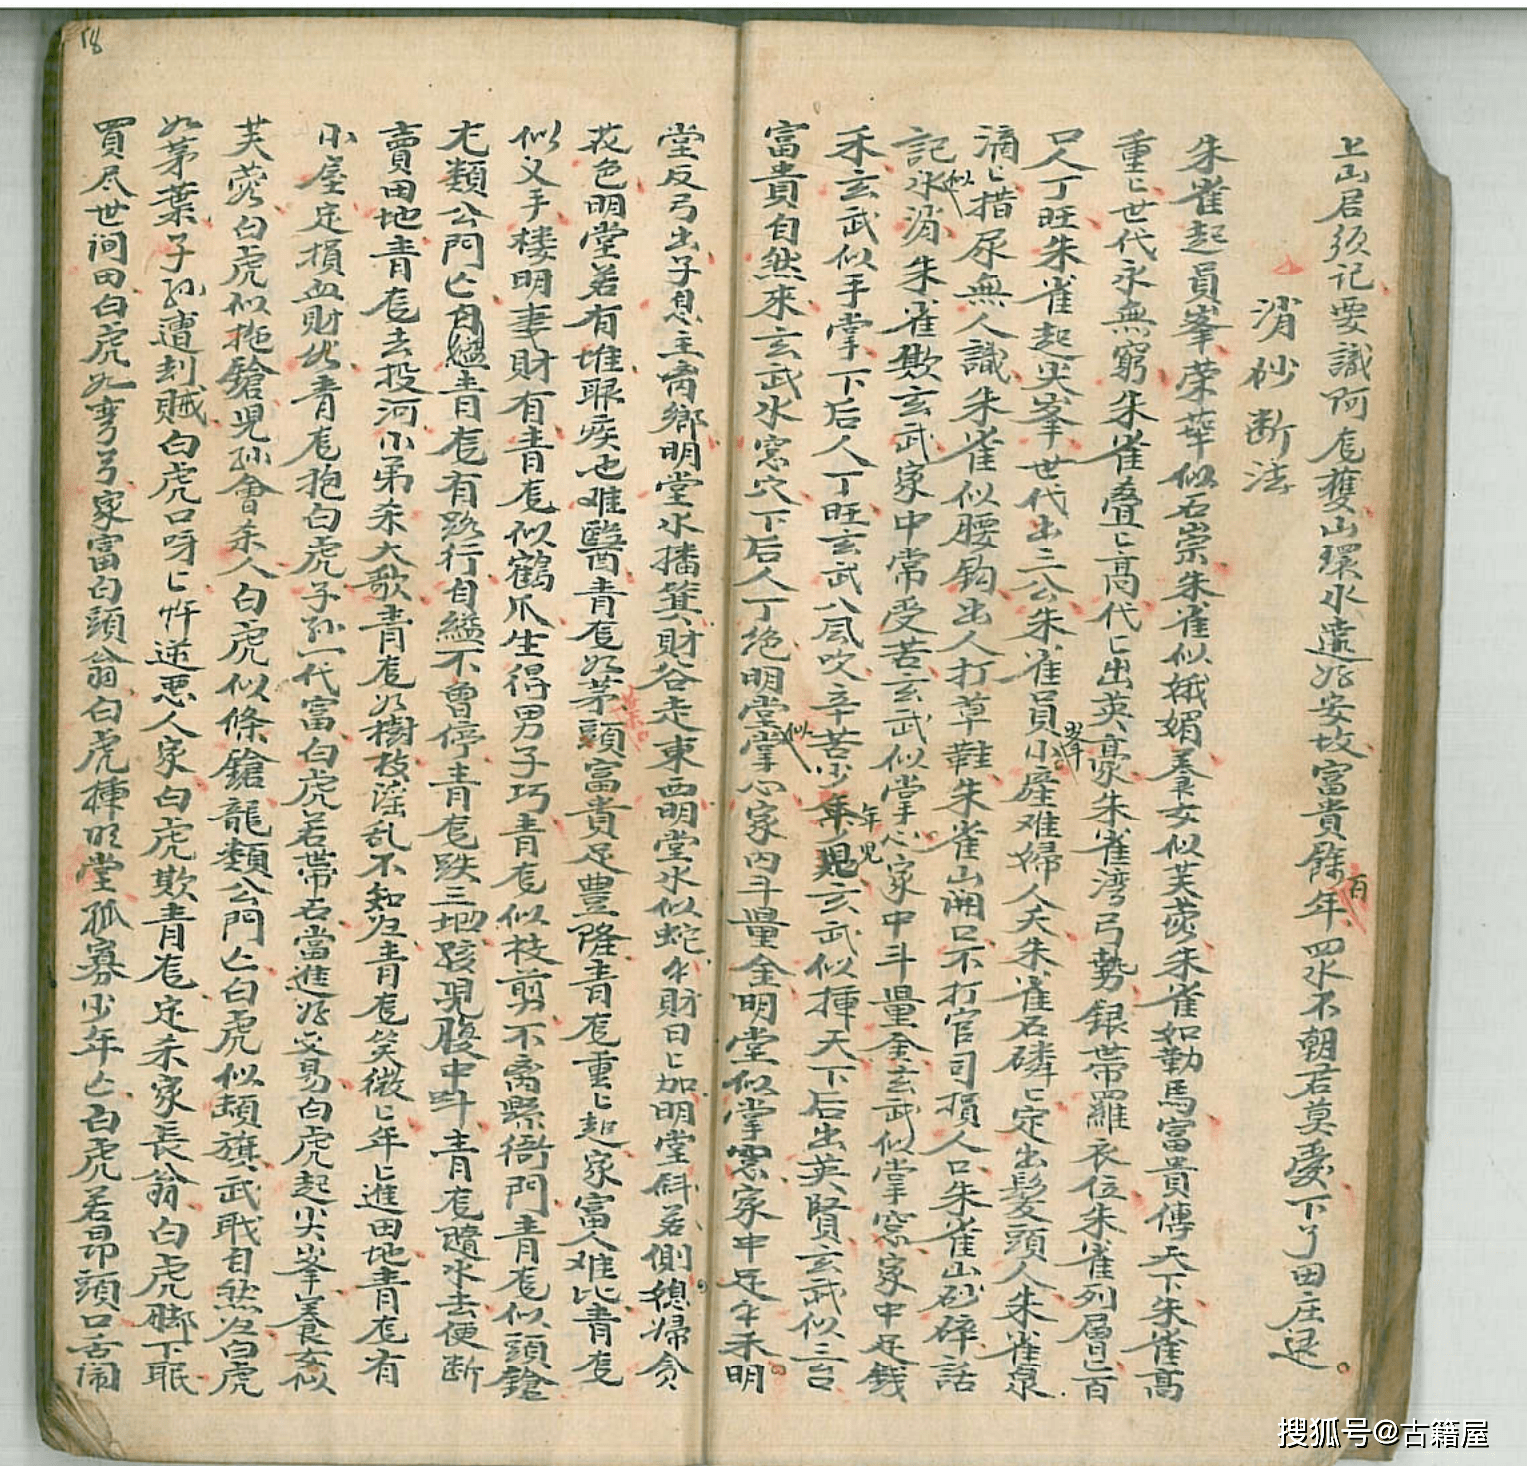 上山居須記要識阿尨蔓山環水遶好安坟富貴餘百年四水不朝君莫憂下了田庄退
消砂断法
朱雀起員峯荣華似石崇朱雀似娥媚養女似芙蓉朱雀如勒馬富貴傳天下朱雀高
重〻世代永無窮朱雀叠〻高代〻出英豪朱雀湾弓勢銀帯羅衣位朱雀列層〻百
口人丁旺朱雀起尖峯世代出三公朱雀員小峯産难婦人夭朱雀石磷〻定出髮頭人朱雀泉
滴〻措尿無人識朱雀似腰鈎出人打草鞋朱雀山開口不打官司損人口朱雀山砂碎話
記似水消朱雀欺玄武家中常受苦玄武似掌心家中斗量金玄武似掌窩家中足錢
禾玄武似手掌下后人丁旺玄武八風吹辛苦少年児玄武似揷天下后出英賢玄武似三台
富貴自然來玄武水窓穴下后人丁绝明堂似掌心家内斗量金明堂似掌窩家中足牛禾明
堂反弓出子息主离鄉明堂水播箕財谷走東西明堂水似蛇牛財日〻加明堂斜若側穂帰贪
花色明堂若有堆眼疾也难醫青尨如茅葉頭富貴足豊隆青尨重〻起家富人难比青尨
似义手楼明妻財有青尨似鶴爪生得男子巧青尨似枝剪不离縣衙門青尨似頭鎗
尢類公門亡青尨有路行自縊不曾停青尨跌三地孩児腹中叶青尨隨水去便断
賣田地青尨去投河小弟杀大歌青尨如樹枝滛乱不知归青尨笑微〻年〻進田地青尨有
小屋定損血財然青尨抱白虎子孙一代富白虎若帯石當進好交易白虎起尖峯養女似
芙蓉白虎似拖鎗児孙會杀人白虎似條鎗龍類公門亡白虎似頡旗武戝自然归白虎
如茅葉子孙遭刦贼白虎口呀〻忤逆悪人家白虎欺青尨定杀家長翁白虎脚下眠
買尽世间田白虎如弯弓家富白頭翁白虎揷明堂孤寡少年亡白虎若昂頭口舌闹
18
搜狐号@古籍屋